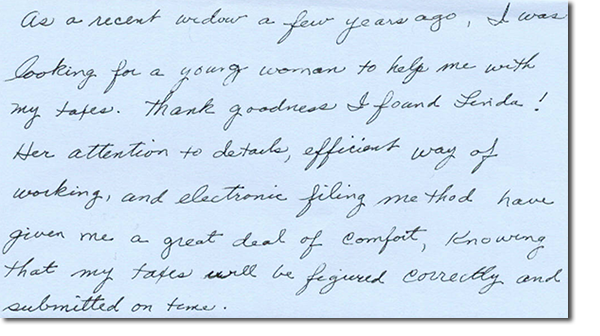 As a recent widow a few years ago, I was
looking for a young woman to help me with
my taxes. Thank goodness I found Linda!
Her attention to details, efficient way of
working, and electronic filing method have
given me a great deal of comfort, knowing
that my taxes will be figured correctly and
submitted on time.